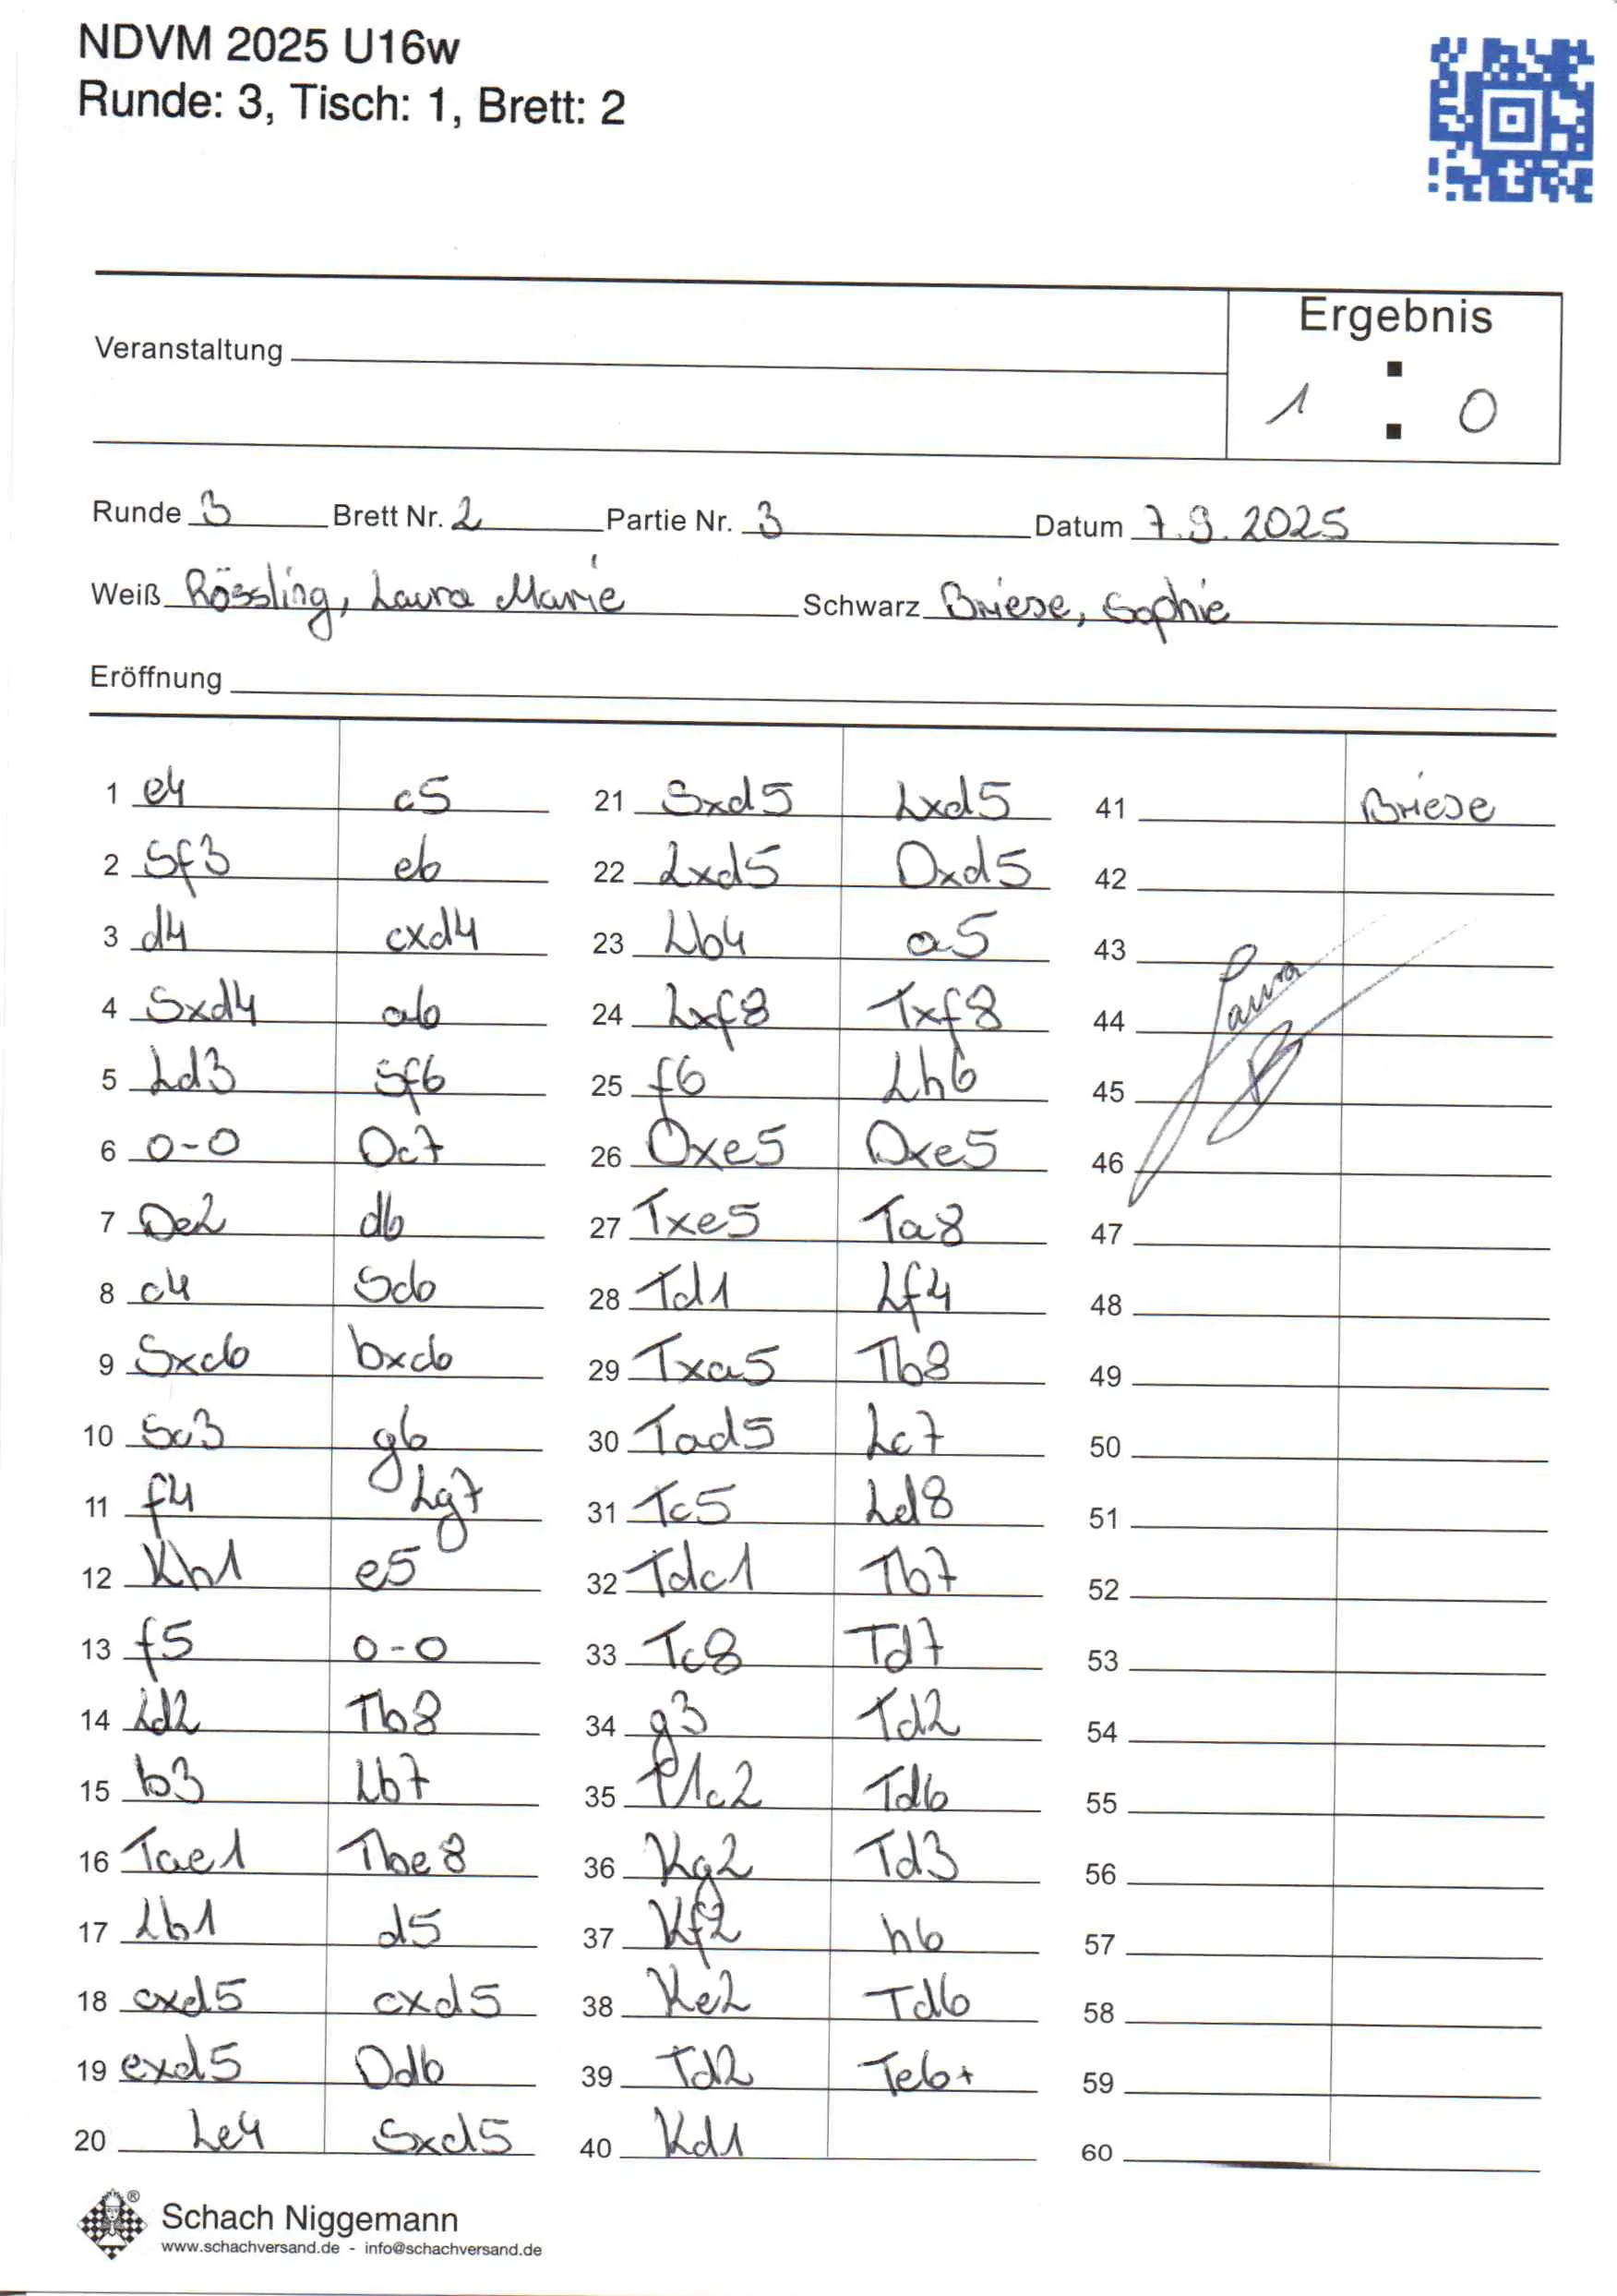 NDVM 2025 U16w
Runde: 3, Tisch: 1, Brett: 2
Ergebnis
Veranstaltung
1 : 0
Runde 3 Brett Nr. 2 Partie Nr. 3 Datum 7.9.2025
Weiß Rössling, Laura Marie Schwarz Briese, Sophie
Eröffnung
1 e4 c5
2 Sf3 e6
3 d4 cxd4
4 Sxd4 a6
5 Ld3 Sf6
6 0-0 Dc7
7 De2 d6
8 c4 Sc6
9 Sxc6 bxc6
10 Sc3 g6
11 f4 Lg7
12 Kh1 e5
13 f5 0-0
14 Ld2 Tb8
15 b3 Lb7
16 Tae1 Tbe8
17 Lb1 d5
18 cxd5 cxd5
19 exd5 Dd6
20 Le4 Sxd5
21 Sxd5 Lxd5
22 Lxd5 Dxd5
23 Lb4 a5
24 Lxf8 Txf8
25 f6 Lh6
26 Dxe5 Dxe5
27 Txe5 Ta8
28 Td1 Lf4
29 Txa5 Tb8
30 Tad5 Lc7
31 Tc5 Ld8
32 Tdc1 Tb7
33 Tc8 Td7
34 g3 Td2
35 T1c2 Td6
36 Kg2 Td3
37 Kf2 h6
38 Ke2 Td6
39 Td2 Te6+
40 Kd1
41 Briese
42
43
Laura
44
45
46
47
48
49
50
51
52
53
54
55
56
57
58
59
60
®
Schach Niggemann
www.schachversand.de - info@schachversand.de